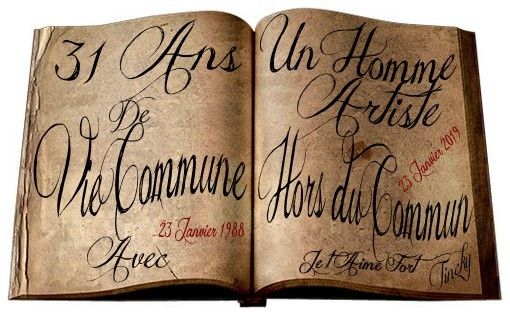 31 Ans
De
Vie Commune
23 Janvier 1988
Avec
Un Homme
Artiste
23 Janvier 2019
Hors du Commun
Je t'Aime Fort
Tincky